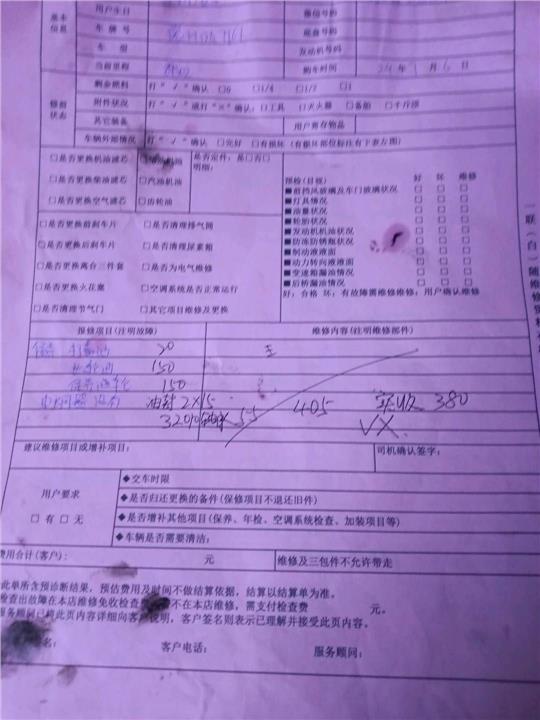 基本信息
用户生日
微信号码
车牌号
底盘号码
车型
发动机号码
当前里程
购车时间 24年1月6日
修前状态
剩余燃料 打“√”确认 □0 □1/4 □1/2 □1
附件状况 打“√”或打“×”确认：□工具 □灭火器 □备胎 □千斤顶
其它装备
用户寄存物品
车辆外部情况 打“√”确认 □完好 □有损坏（有损坏部位标注有下表左图）
□是否更换机油滤芯
□是否更换柴油滤芯 □汽油机油
□是否更换空气滤芯 □齿轮油
是否定件：是□否□
明细：
预检(目视) 好 坏 维修
■前挡风玻璃及车门玻璃状况 □ □ □
■灯具情况 □ □ □
■油量状况 □ □ □
■轮胎状况 □ □ □
■发动机机油状况 □ □ □
■防冻防锈瓶状况 □ □ □
■制动液液面 □ □ □
■动力转向液液面 □ □ □
■变速箱漏油情况 □ □ □
■后桥漏油情况 □ □ □
好：合格 坏：有故障需维修维修：用户确认维修
□是否更换前刹车片 □是否清理排气筒
□是否更换后刹车片 □是否清理尿素箱
□是否更换离合三件套 □是否为电气维修
□是否更换火花塞 □空调系统是否正常运行
□是否清理节气门 □其它项目维修及更换
报修项目(注明故障)
维修内容(注明维修部件)
20
150
150
油封 2×15
405 实收 380
3201 55
VX
建议维修项目或增补项目：
司机确认签字：
用户要求
□有 □无
◆交车时限
◆是否归还更换的备件(保修项目不退还旧件)
◆是否增补其他项目(保养、年检、空调系统检查、加装项目等)
◆车辆是否需要清洁：
费用合计(客户)： 元
维修及三包件不允许带走
此单所含预诊断结果，预估费用及时间不做结算依据，结算以结算单为准。
检查出故障在本店维修免收检查 不在本店维修，需支付检查费 元。
服务顾问已将此页内容详细向客户说明，客户签名则表示已理解并接受此页内容。
名： 客户电话： 服务顾问：